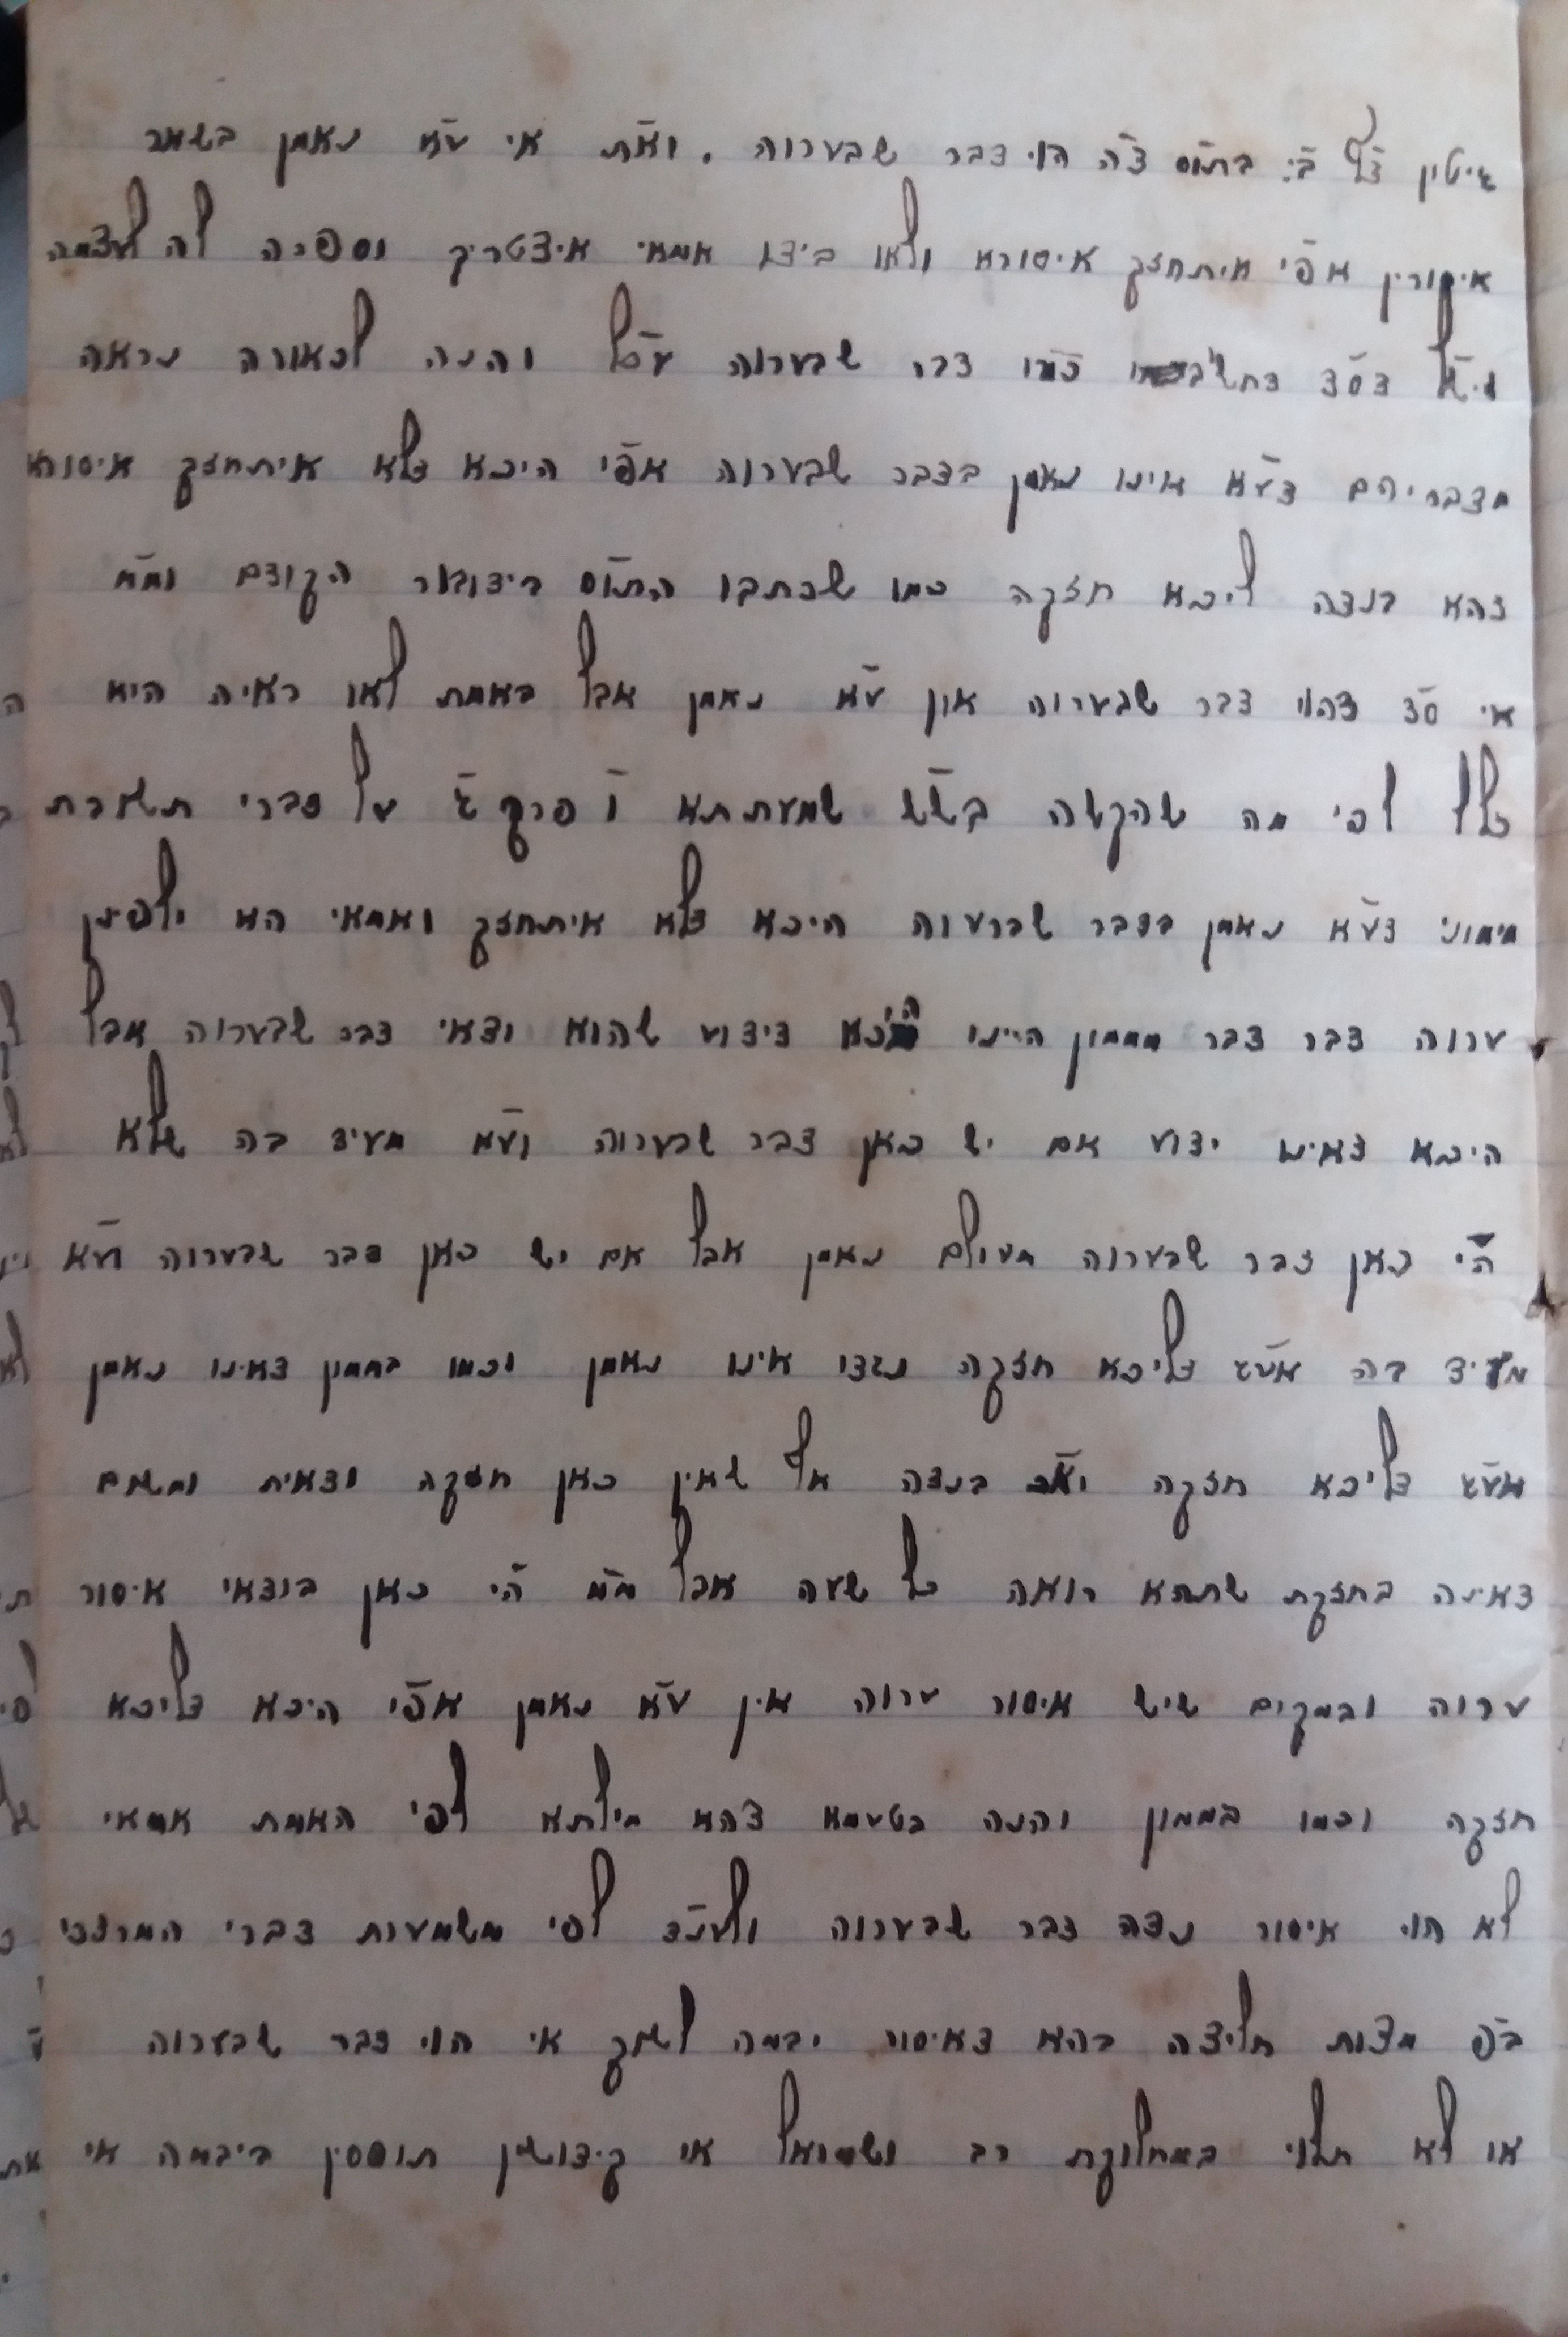 גיטין דף ב: בתוס ד"ה הוי דבר שבערוה. וא"ת אי ע"א נאמן בשאר
איסורין אפי' איתחזק איסורא ולאו בידו אמאי איצטריך וספרה לה לעצמה
וי"ל דס"ד דחשיב כמו דבר שבערוה עכ"ל והנה לכאורה נראה
מדבריהם דע"א אינו נאמן בדבר שבערוה אפי' היכא דלא איתחזק איסורא
דהא בנדה ליכא חזקה כמו שכתבו התוס בידובור הקודם ומ"מ
אי ס"ד דהוי דבר שבערוה אין ע"א נאמן אבל באמת לאו ראיה היא
כלל לפי מה שהקשה בש"ש שמעתתא ו' פרק ג' על דברי תשובת
מימוני דע"א נאמן בדבר שברעוה היכא דלא איתחזק ואמאי הא ילפינן
ערוה דבר דבר מממון היינו היכא דידוע שהוא ודאי דבר שבערוה אבל
היכא דאינו ידוע אם יש כאן דבר שבערוה וע"א מעיד בה שלא
הי' כאן דבר שבערוה מעולם נאמן אבל אם יש כאן דבר שבערוה וע"א
מעיד בה אע"ג דליכא חזקה נגדו אינו נאמן וכמו בממון דאינו נאמן
אע"ג דליכא חזקה וא"כ בנדה אף שאין כאן חזקה ודאית ומשום
דאינה בחזקת שתהא רואה כל שעה אבל מ"מ הי' כאן בודאי איסור
ערוה ובמקום שיש איסור ערוה אין ע"א נאמן אפי' היכא דליכא
חזקה וכמו בממון והנה בטעמא דהא מילתא לפי האמת אמאי
לא הוי איסור נדה דבר שבערוה ולענ"ד לפי משמעות דברי המרדכי
בפ' מצות חליצה בהא דאיסור יבמה לשוק אי הוי דבר שבערוה
או לא תלוי במחלוקת רב ושמואל אי קידושין תופסין ביבמה אי